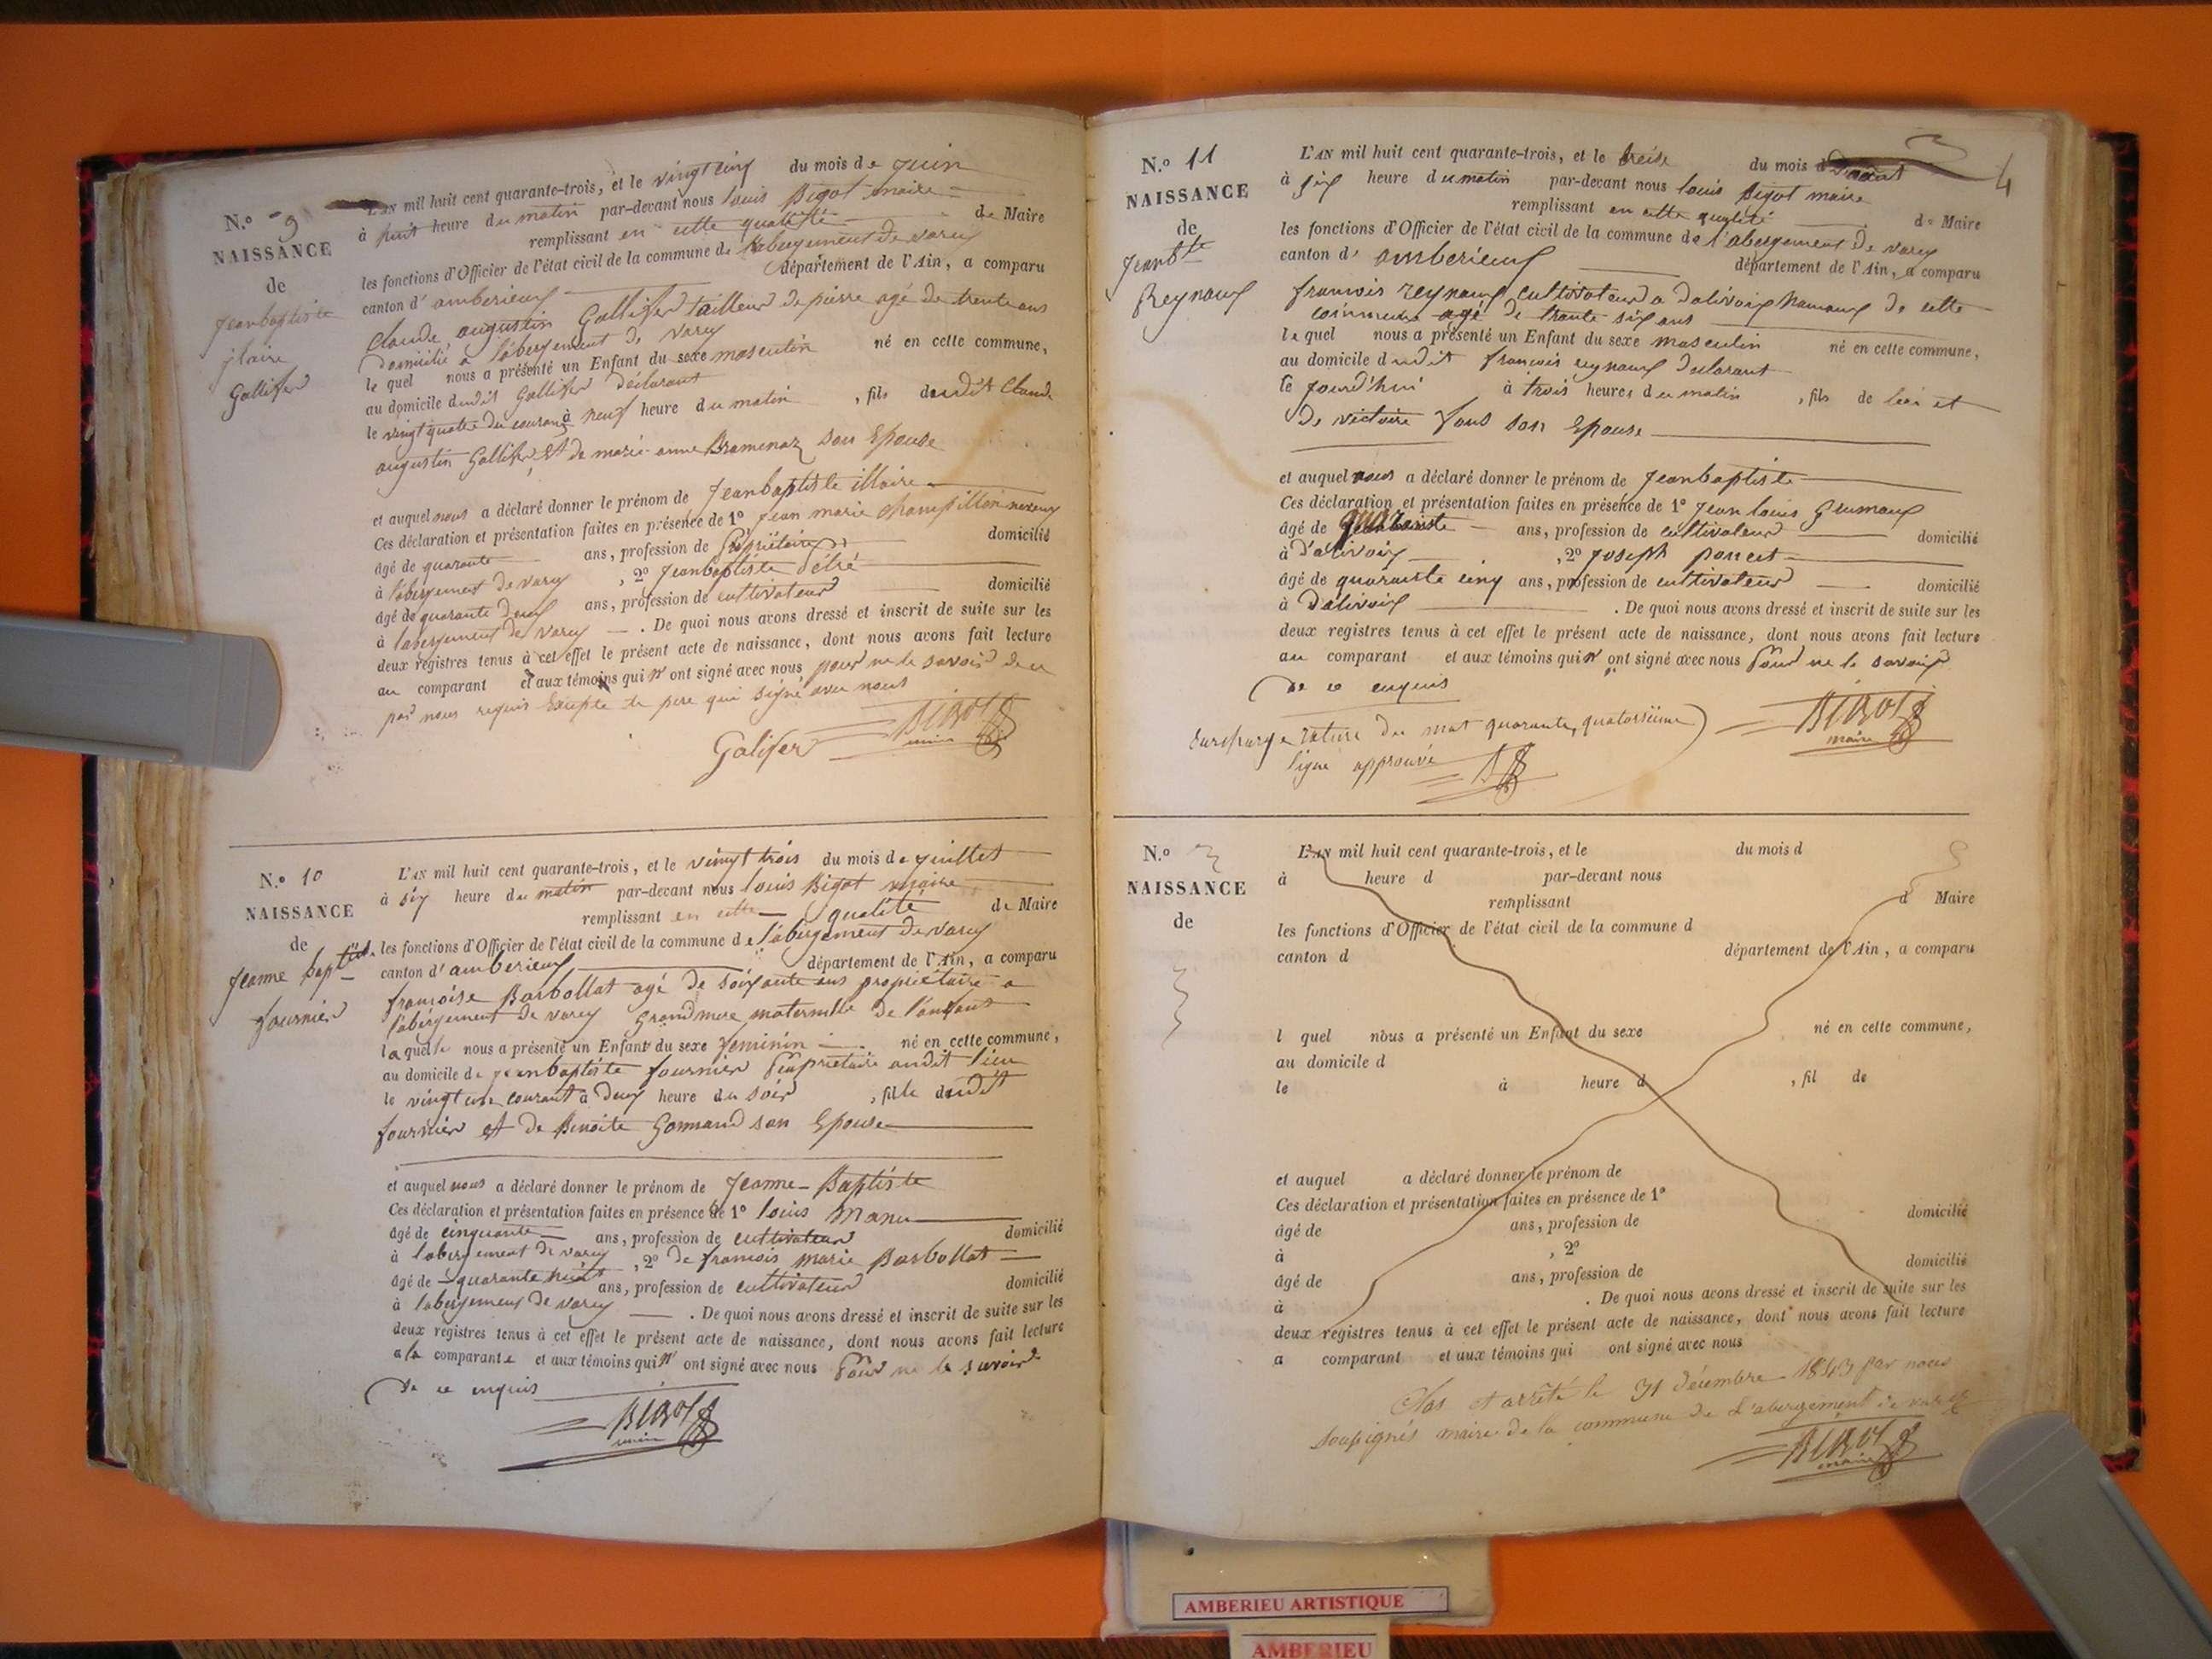 N.o 9
NAISSANCE
de
Jeanbaptiste
jlaire
Gallifer
L'AN mil huit cent quarante-trois, et le vingt cinq du mois de Juin
à huit heure du matin par-devant nous louis Bigot maire
remplissant en cette qualité de Maire
les fonctions d'Officier de l'état civil de la commune de l'abergement de varey
canton d' amberieux département de l'Ain, a comparu
Claude, augustin Gallifer tailleur de pierre agé de trente ans
domicilié a l'abergement de varey
le quel nous a présenté un Enfant du sexe masculin né en cette commune,
au domicile dudit Gallifer déclarant
le vingt quatre du courant à neuf heure du matin , fils dudit Claude
augustin Gallifer, et de marie anne Bramenaz son Epouse
et auquel nous a déclaré donner le prénom de Jeanbaptiste illaire
Ces déclaration et présentation faites en présence de 1o Jean marie champillon
âgé de quarante ans, profession de Propriétaire domicilié
à l'abergement de varey , 2o Jeanbaptiste
âgé de quarante deux ans, profession de cultivateur domicilié
à l'abergement de varey . De quoi nous avons dressé et inscrit de suite sur les
deux registres tenus à cet effet le présent acte de naissance, dont nous avons fait lecture
au comparant et aux témoins qui n' ont signé avec nous pour ne le savoir de ce
par nous requis Excepté le pere qui signé avec nous
Galifer BIGOT
maire
N.o 10
NAISSANCE
de
Jeanne baptiste
fournier
L'AN mil huit cent quarante-trois, et le vingt trois du mois de Juillet
à six heure du matin par-devant nous louis Bigot maire
remplissant en cette qualité de Maire
les fonctions d'Officier de l'état civil de la commune de l'abergement de varey
canton d' amberieux département de l'Ain, a comparu
françoise Barbollat agé de soixante ans propriétaire a
l'abergement de varey Grandmere maternelle de l'anfant
laquelle nous a présenté un Enfant du sexe feminin né en cette commune,
au domicile de jeanbaptiste fournier Propriétaire audit lieu
le vingt un courant à deux heure du soir , fille dudit
fournier et de Benoite Gonnand son Epouse
et auquel nous a déclaré donner le prénom de Jeanne-Baptiste
Ces déclaration et présentation faites en présence de 1o louis
âgé de cinquante ans, profession de cultivateur domicilié
à l'abergement de varey , 2o de françois marie Barbollat
âgé de quarante huit ans, profession de cultivateur domicilié
à l'abergement de varey . De quoi nous avons dressé et inscrit de suite sur les
deux registres tenus à cet effet le présent acte de naissance, dont nous avons fait lecture
a la comparante et aux témoins qui n' ont signé avec nous Pour ne le savoir
de ce enquis
BIGOT
maire
4
N.o 11
NAISSANCE
de
Jeanbte
Reynaux
L'AN mil huit cent quarante-trois, et le treise du mois d'aout
à six heure du matin par-devant nous louis Bigot maire
remplissant en cette qualité de Maire
les fonctions d'Officier de l'état civil de la commune de l'abergement de varey
canton d' amberieux département de l'Ain, a comparu
francois reynaux cultivateur a dalivoix hamaux de cette
commune agé de trante six ans
le quel nous a présenté un Enfant du sexe masculin né en cette commune,
au domicile dudit françois reynaux declarant
le jourd'hui à trois heures du matin , fils de lui et
de victoire son Epouse
et auquel nous a déclaré donner le prénom de Jeanbaptiste
Ces déclaration et présentation faites en présence de 1o Jean louis
âgé de quarante ans, profession de cultivateur domicilié
à d'alivoix , 2o Joseph poncet
âgé de quarante cinq ans, profession de cultivateur domicilié
à Dalivoix . De quoi nous avons dressé et inscrit de suite sur les
deux registres tenus à cet effet le présent acte de naissance, dont nous avons fait lecture
au comparant et aux témoins qui n' ont signé avec nous Pour ne le savoir
de ce enquis
BIGOT
maire
Surcharge rature du mot quarante, quatorsieme
ligne approuvé
N.o
NAISSANCE
de
L'AN mil huit cent quarante-trois, et le du mois d
à heure d par-devant nous
remplissant d Maire
les fonctions d'Officier de l'état civil de la commune d
canton d département de l'Ain, a comparu
l quel nous a présenté un Enfant du sexe né en cette commune,
au domicile d
le à heure d , fil de
et auquel a déclaré donner le prénom de
Ces déclaration et présentation faites en présence de 1o
âgé de ans, profession de domicilié
à , 2o
âgé de ans, profession de domicilié
à . De quoi nous avons dressé et inscrit de suite sur les
deux registres tenus à cet effet le présent acte de naissance, dont nous avons fait lecture
a comparant et aux témoins qui ont signé avec nous
Clos et arrêté le 31 décembre 1843 par nous
soussignés maire de la commune de L'abergement de varey
BIGOT
maire
AMBERIEU ARTISTIQUE
AMBERIEU